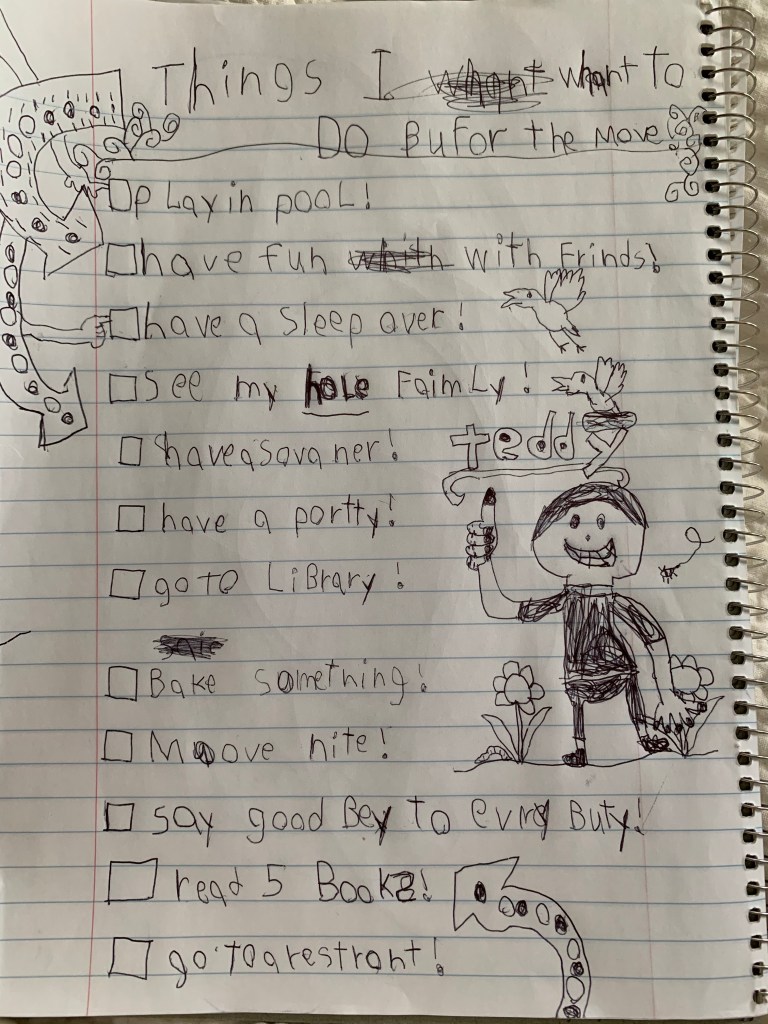 Things I whant to
DO BuFor the Move
Play in pooL!
have fun with Frinds!
have a sleep over!
See my hole FaimLy!
tedd
have a sova ner!
have a portty!
go to LiBrary!
Bake something!
Moove nite!
say good Bey to evry Buty!
read 5 Books!
go to a restront!